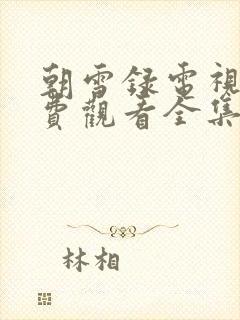 朝雪録電視
費觀看全集
林相